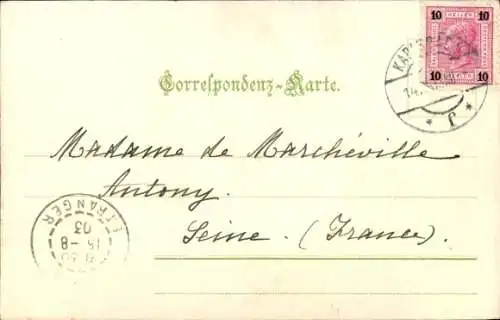 10 HELLER 10
10 HELLER 10
Correspondenz-Karte.
Madame de Marchéville
Antony.
Seine. (France).
ETRANGER
15-8
03